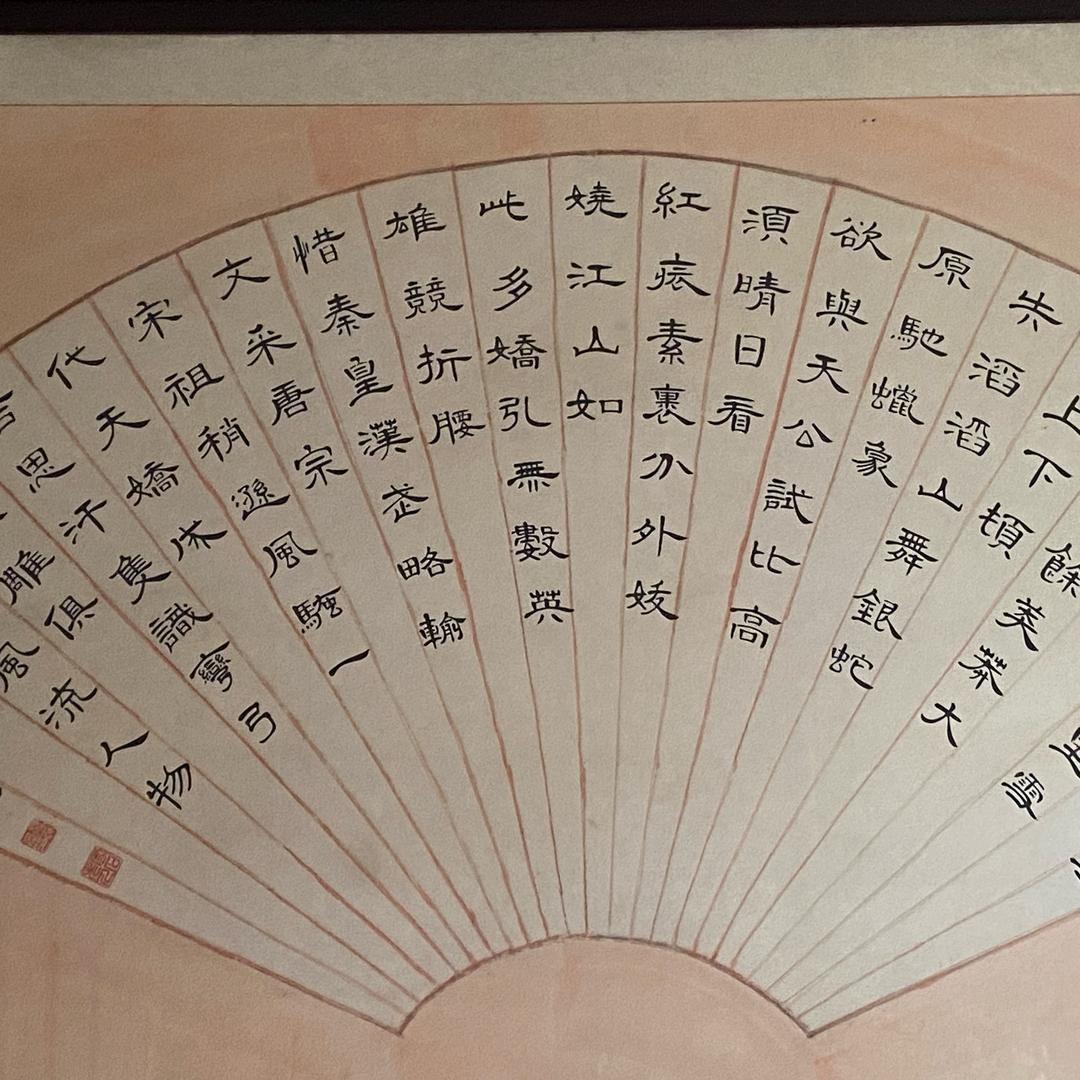 雪
餘莽莽大
上下頃
失滔滔山舞銀蛇
原馳蠟象
欲與天公試比高
湏晴日看
紅裝素裹分外妖
嬈江山如
此多嬌引無數英
雄競折腰
惜秦皇漢武略輸
文采唐宗
宋祖稍遜風騷一
代天嬌成
吉思汗隻識彎弓
雕俱
風流人物